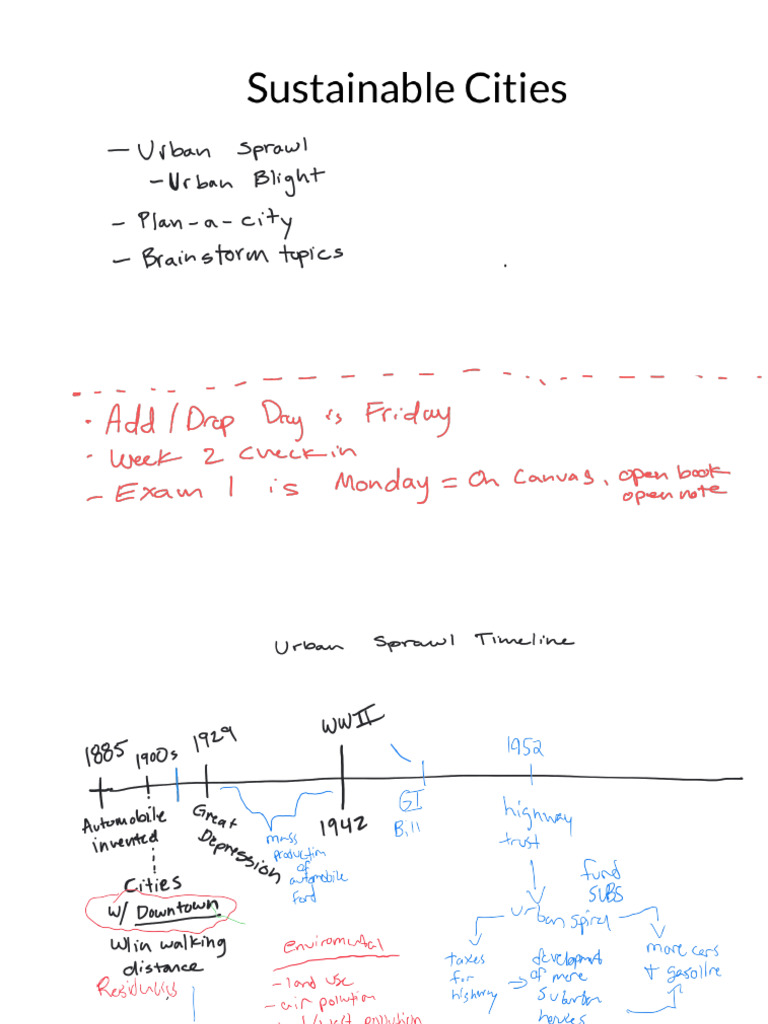 Sustainable Cities
— Urban Sprawl
– Urban Blight
– Plan-a-city
– Brainstorm topics
· Add/Drop Day is Friday
· Week 2 Check in
– Exam 1 is Monday = On Canvas, open book
open note
Urban Sprawl Timeline
1885
1900s
1929
WWII
1952
Automobile
invented
Great
Depression
mass
production
of
automobile
Ford
1942
GI
Bill
highway
trust
Cities
w/ Downtown
W/in walking
distance
fund
SUBS
urban
taxes
for
highway
of more
suburban
more cars
+
Enviromental
– land use
– air pollution
pollution